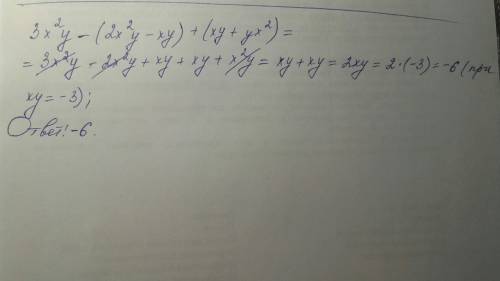 3x²y - (2x²y - xy) + (xy + yx²) =
= 3x²y - 2x²y + xy + xy + x²y = xy + xy = 2xy = 2·(-3) = -6 (при
xy = -3);
Ответ: -6.